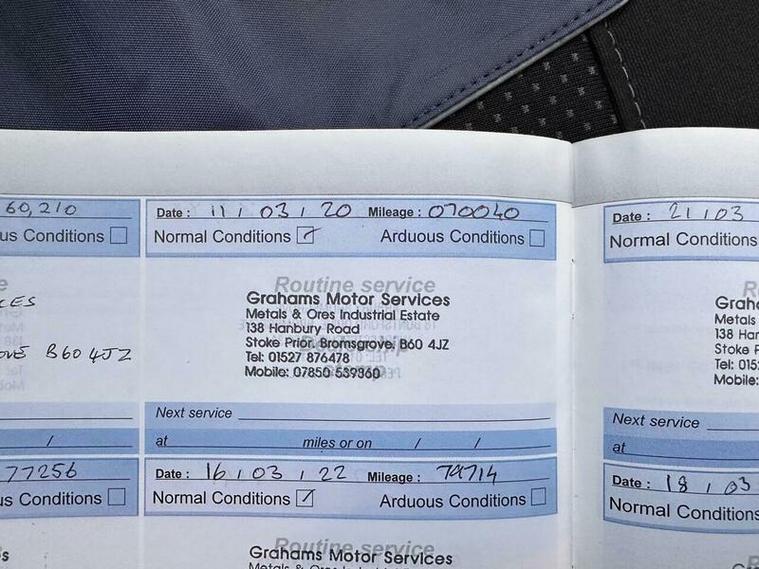 60,210
us Conditions
CES
OVE B60 4JZ
/
77256
us Conditions
Date : 11 / 03 / 20 Mileage : 070040
Normal Conditions Arduous Conditions
Routine service
Grahams Motor Services
Metals & Ores Industrial Estate
138 Hanbury Road
Stoke Prior, Bromsgrove, B60 4JZ
Tel: 01527 876478
Mobile: 07850 539360
Next service
at miles or on / /
Date : 16 / 03 / 22 Mileage : 79714
Normal Conditions Arduous Conditions
Routine service
Grahams Motor Services
Date : 21 / 03
Normal Conditions
Grah
Metals
138 Han
Stoke P
Tel: 015
Mobile:
Next service
at
Date : 18 / 03
Normal Conditions